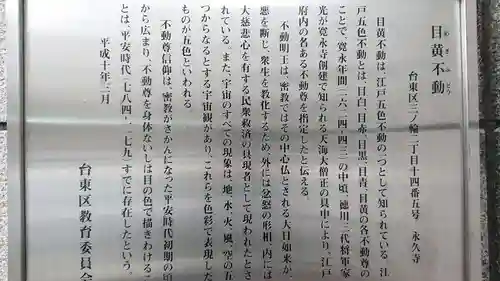 目黄不動
めきふどう
台東区三ノ輪二丁目十四番五号 永久寺
目黄不動は、江戸五色不動の一つとして知られている。江
戸五色不動とは、目白・目赤・目黒・目青・目黄の各不動尊の
ことで、寛永年間(一六二四-四三)の中頃、徳川三代将軍家
光が寛永寺創建で知られる天海大僧正の具申により、江戸
府内の名ある不動尊を指定したと伝える。
不動明王は、密教ではその中心仏とされる大日如来が、
悪を断じ、衆生を教化するため、外には忿怒の形相、内には
大慈悲心を有する民衆救済の具現者として現われたとさ
れている。また、宇宙のすべての現象は、地、水、火、風、空の五
つからなるとする宇宙観があり、これらを色彩で表現した
ものが五色といわれる。
不動尊信仰は、密教がさかんになった平安時代初期の頃
から広まり、不動尊を身体ないしは目の色で描きわけるこ
とは、平安時代(七八四-一一七九)すでに存在したという。
平成十年三月
台東区教育委員会